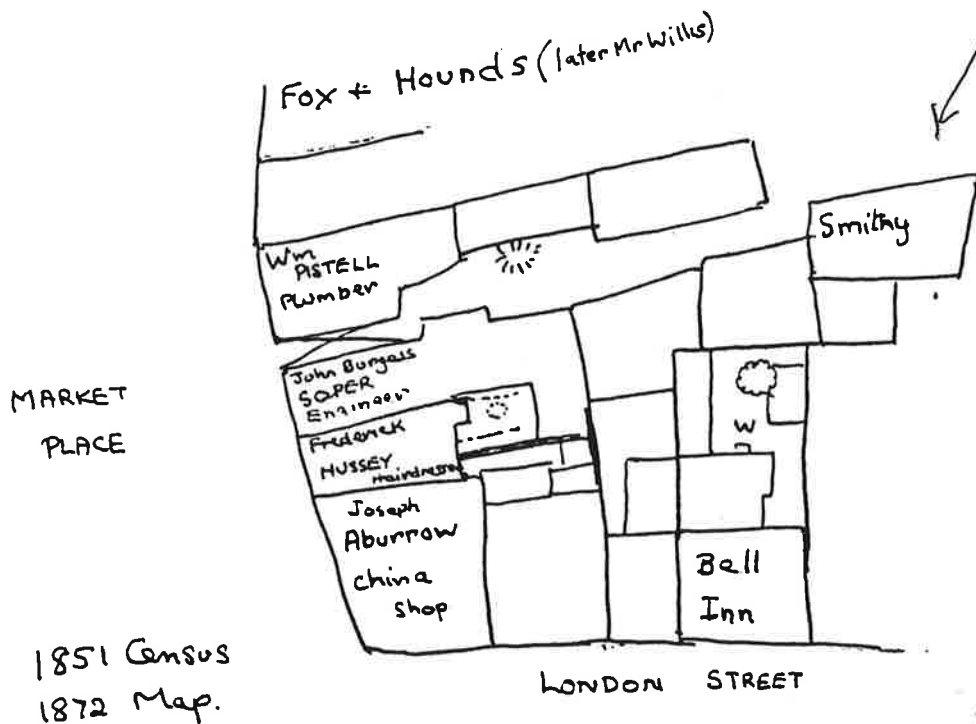 Fox + Hounds (later Mr Wills)
Smithy
Wm
PISTELL
Plumber
John Burgess
SOPER
Engineer
MARKET
PLACE
Frederick
HUSSEY
Hairdresser
W
Joseph
Aburrow
china
shop
Bell
Inn
1851 Census
1872 Map.
LONDON STREET